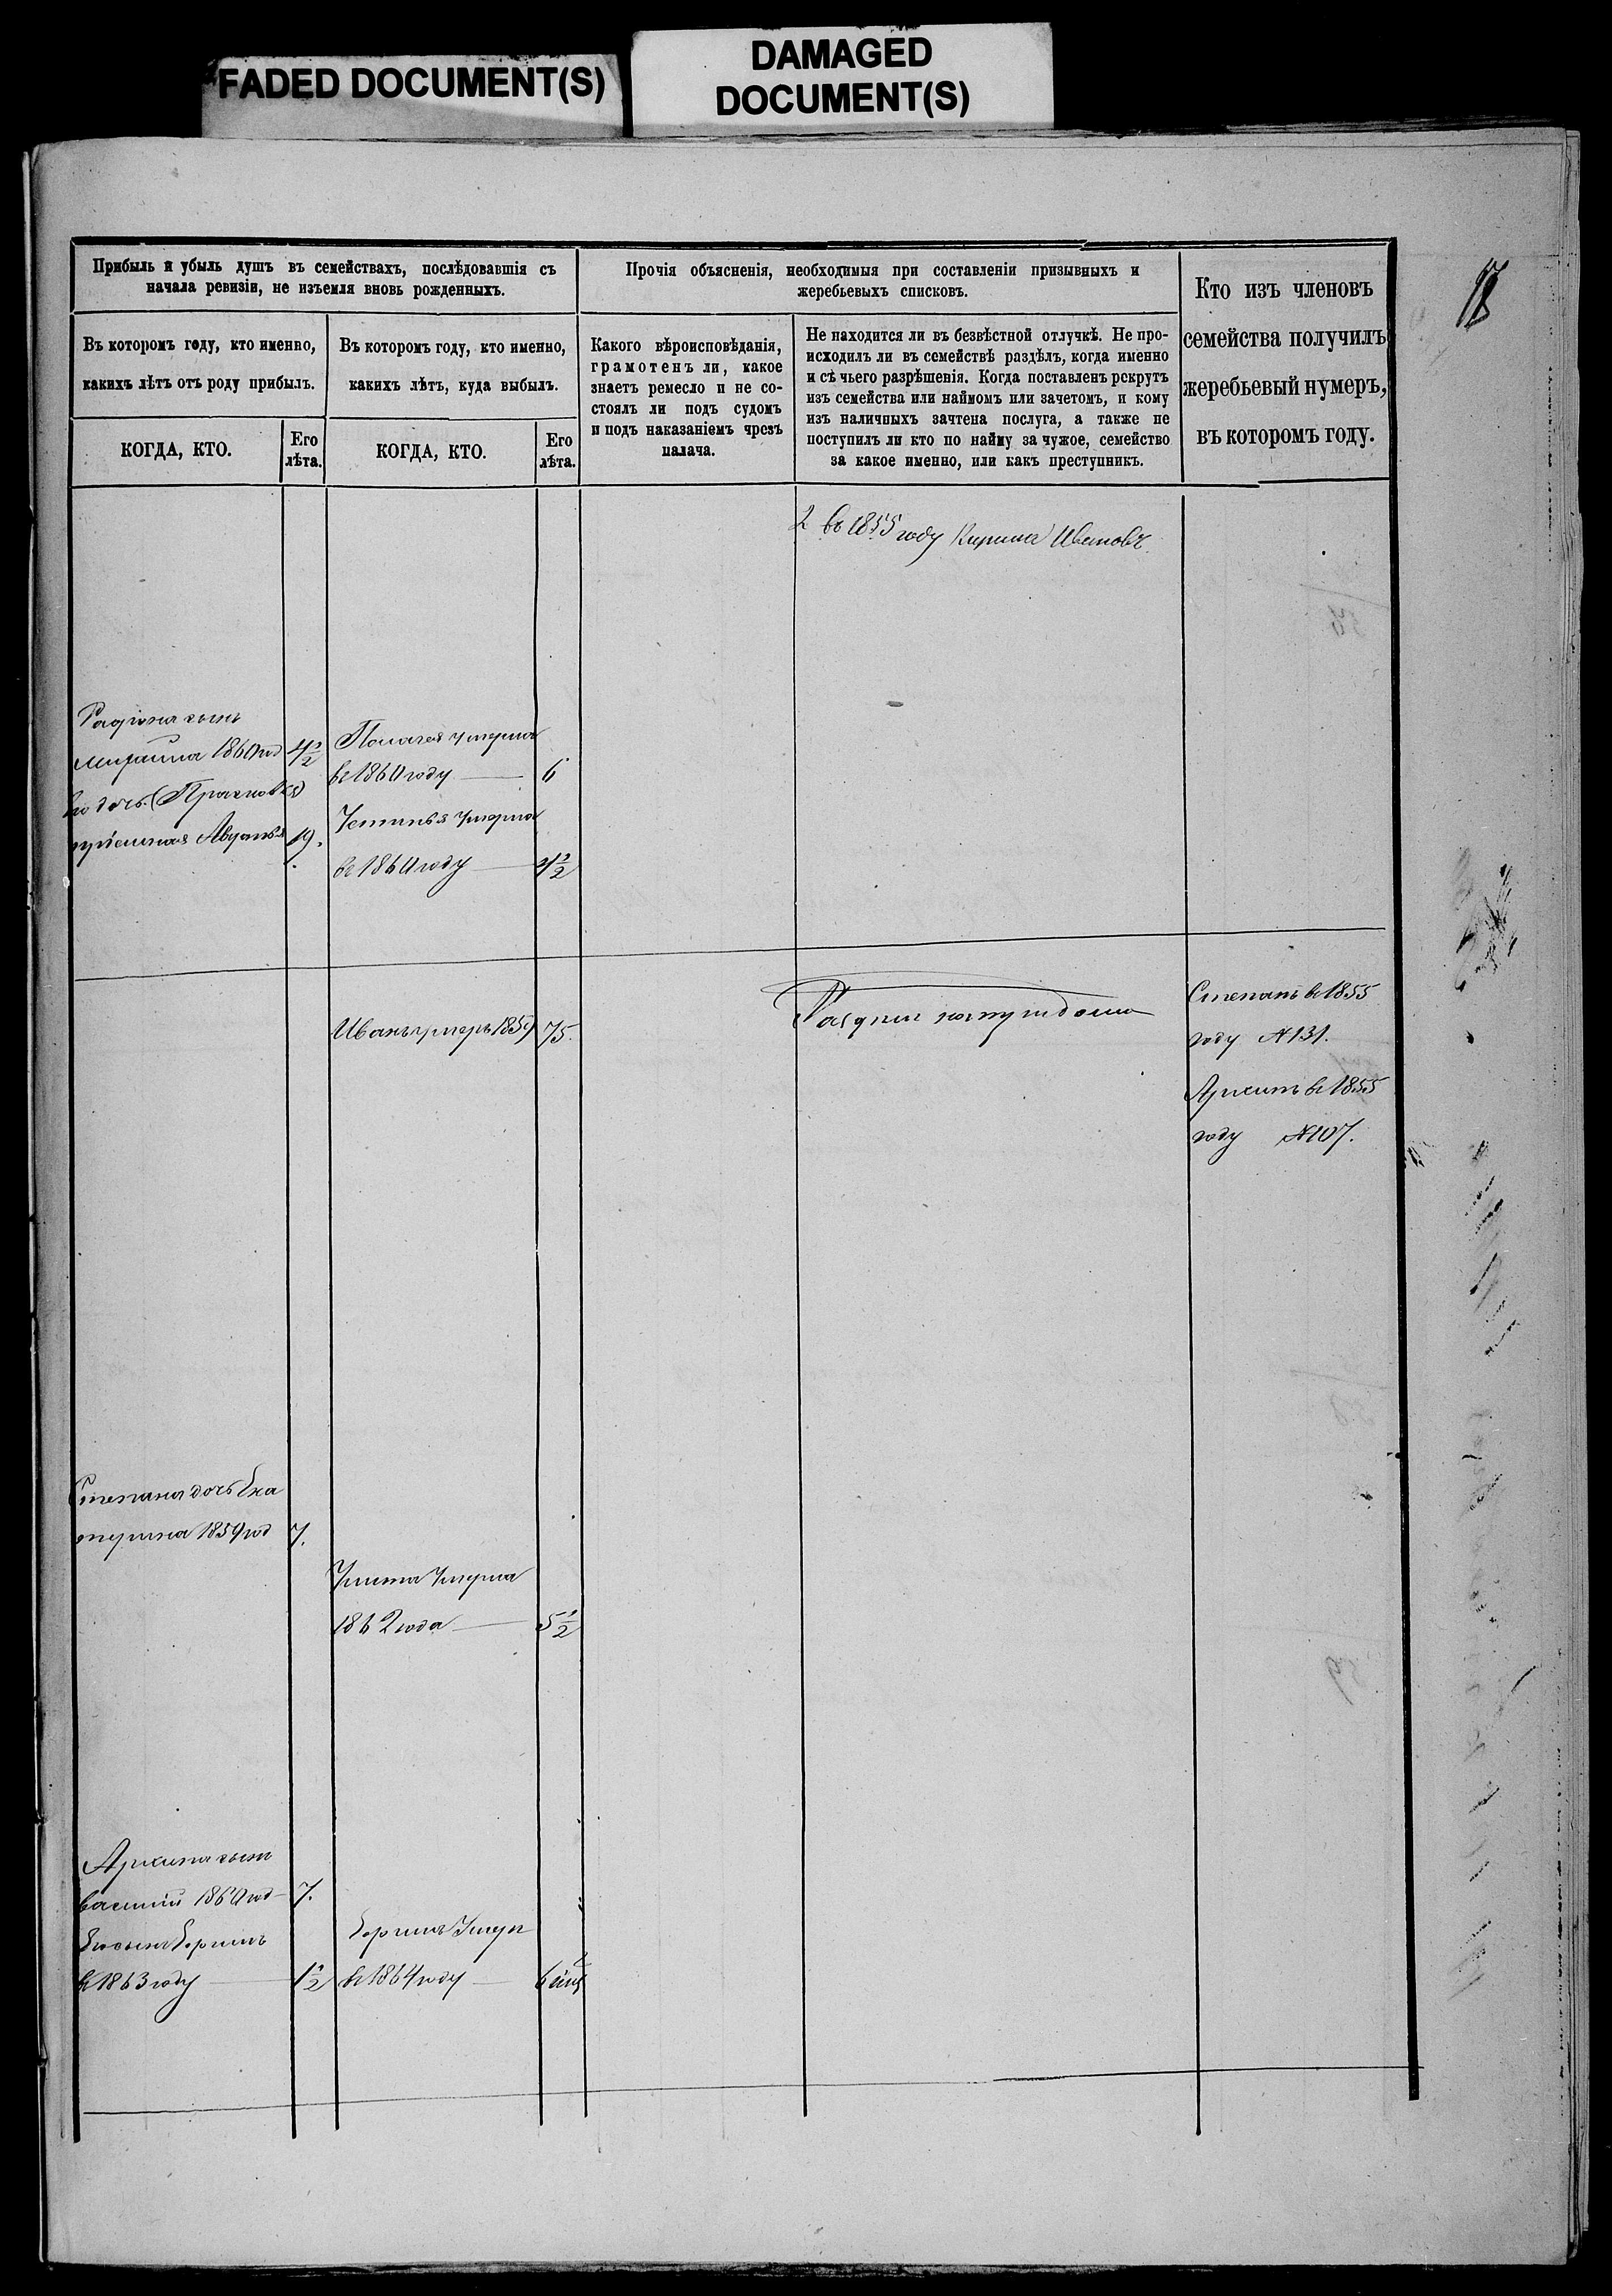 FADED DOCUMENT(S)
DAMAGED
DOCUMENT(S)
Прибыль и убыль душъ въ семействахъ, послѣдовавшія съ
начала ревизіи, не изъемля вновь рожденныхъ.
Въ которомъ году, кто именно,
какихъ лѣтъ отъ роду прибылъ.
КОГДА, КТО.
Его
лѣта.
Въ которомъ году, кто именно,
какихъ лѣтъ, куда выбылъ.
КОГДА, КТО.
Его
лѣта.
Прочія объясненія, необходимыя при составленіи призывныхъ и
жеребьевыхъ списковъ.
Какого вѣроисповѣданія,
грамотенъ ли, какое
знаетъ ремесло и не со-
стоялъ ли подъ судомъ
и подъ наказаніемъ чрезъ
палача.
Не находится ли въ безвѣстной отлучкѣ. Не про-
исходилъ ли въ семействѣ раздѣлъ, когда именно
и съ чьего разрѣшенія. Когда поставленъ рекрутъ
изъ семейства или наймомъ или зачетомъ, и кому
изъ наличныхъ зачтена послуга, а также не
поступилъ ли кто по найму за чужое, семейство
за какое именно, или какъ преступникъ.
Кто изъ членовъ
семейства получилъ
жеребьевый нумеръ,
въ которомъ году.
2 въ 1855 году Кирила Ивановъ
Радіона сынъ
Михаила 1860 год 4½
дочь (Прасковья)
Авдотья 19.
Палагея умерла
въ 1860 году 6
Устинья умерла
въ 1860 году 4½
Иванъ умеръ 1859 75.
Степанъ въ 1855
году №131.
Архипъ въ 1855
году №107.
Степана дочь Ека
терина 1859 год 7.
Улита Умерла
1862 года 5½
Архипа сынъ
василій 1860 год 7.
Его сынъ Ефимъ
въ 1863 году 1½
Ефимъ Умеръ
въ 1864 году 6